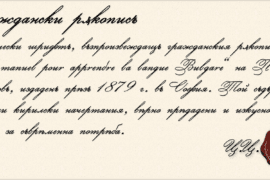 ждански ржкопись
чески шрифтъ, възпроизвеждащъ гражданския ржкопи
manuel pour apprendre la langue Bulgare" на
овъ, издаденъ презъ 1879 г. въ София. Той
и кирилски начертания, вѣрно предадени и изкусно
за съврѣменна потрѣба.